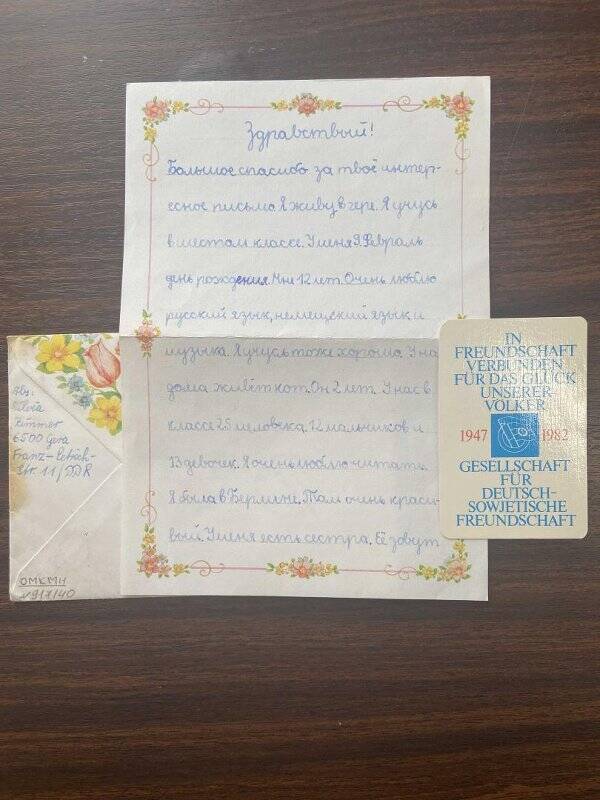 Здравствый!
Большое спасибо за твоё интер-
есное письмо. Я живу в гере. Я учусь
в шестом классе. У меня 9. Февраль
день рождения. Мне 12 лет. Очень люблю
русский язык, немецский язык и
музыка. Я учусь тоже хорошо. У на
дома живёт кот. Он 2 лет. У нас в
классе 25 человека. 12 мальчиков и
13 девочек. Я очень люблю читать.
Я была в Берлине. Там очень краси-
вый. У меня есть сестра. Её зовут
Abs:
Silvia
6500 Gera
Franz-Petrich-
Str. 11/DDR
ОМКМН
IN
FREUNDSCHAFT
VERBUNDEN
FÜR DAS GLÜCK
UNSERER
VÖLKER
1947 1982
GESELLSCHAFT
FÜR
DEUTSCH-
SOWJETISCHE
FREUNDSCHAFT